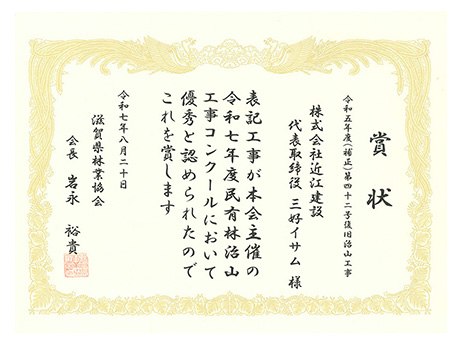 賞状
令和五年度(補正)第四十二号復旧治山工事
株式会社近江建設
代表取締役 三好イサム 様
表記工事が本会主催の
令和七年度民有林治山
工事コンクールにおいて
優秀と認められたので
これを賞します
令和七年八月二十日
滋賀県林業協会
会長 岩永 裕貴